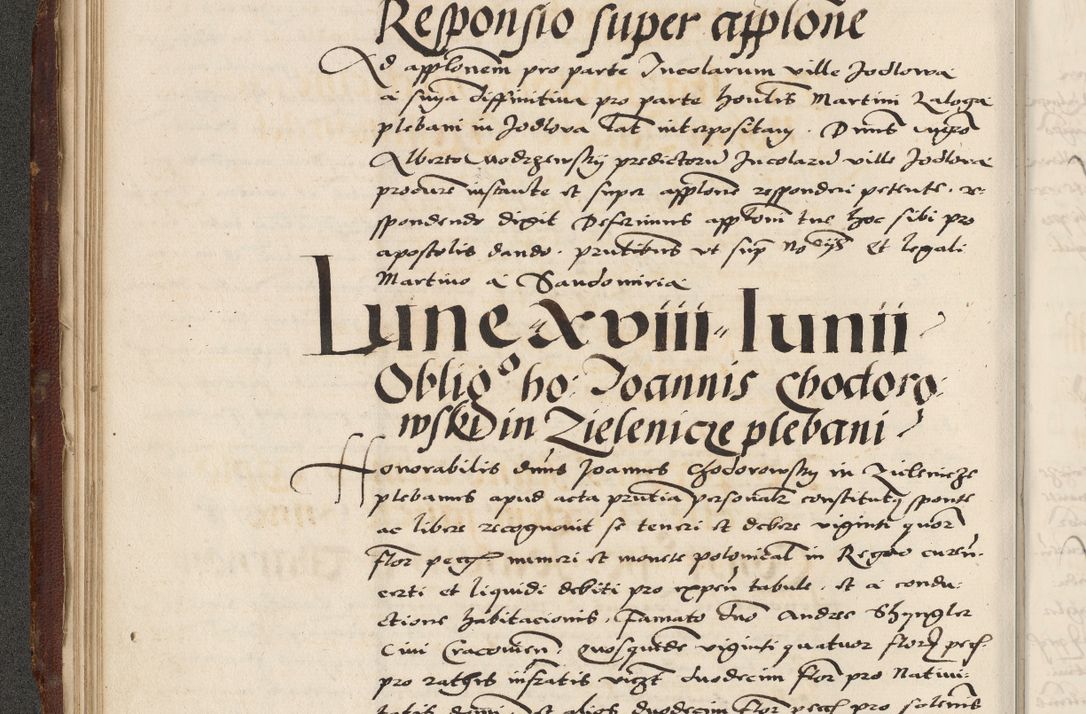 Responsio super applōne
Ad applōnem pro parte Incolarum ville Jodlowa
a snīa diffinitiua pro parte honlīs Martini Zaloga
plebani in Jodlova lat interpositam. Dnūs
Alberto Modrzewsky predictorū Incolarū ville Jodlova
procure instante et super applōne responderi petente, re-
spondendo dixit Deferimus applōni tue hoc sibi pro
apostolis dando. pntibus vt sup Noīs Et legali
Martino a Sandomiria
Lune xviii Iunii
Obligo ho: Joannis Chodoro
wski in Zielenicze plebani
Honorabilis dnūs Joannes Chodorowsky in Zielenicze
plebanus apud acta pntia personalr constitutus sponte
ac libere recognouit se teneri et debere viginti quor
flor pecc numeri et monete polonicat in Regno curen-
certi et liquidi debiti pro expen tabule, et a condu-
ctione habitacionis, Famato dno Andree Shyngler
Ciui Cracouien. Quosquidem viginti quatuor flor pecc
pro rathis infratis vizt duodecim flor pro Natiui-
tatis domi, et alios duodecim flor pecc pro solenis